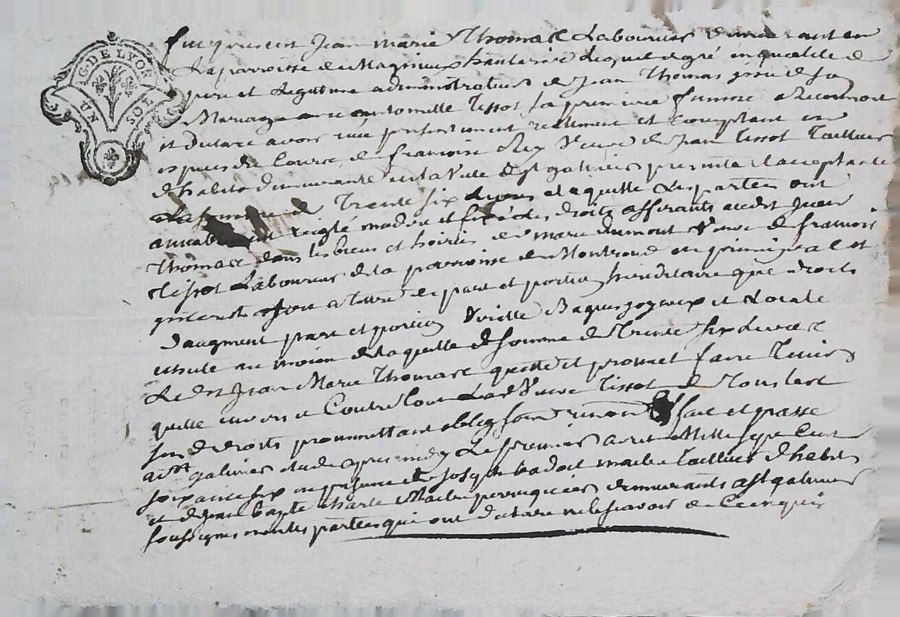 G. DE LYON
UN SOL
fut present Jean marie Thomas Laboureur demeurant en
la parroisse de Magnieux hauterive lequel de gré en qualité de
pere et legitime administrateur de Jean Thomas issu de son
Mariage avec antoinette Tissot sa premiere femme a reconnu
et declaré avoir reçu presentement reellement et comptant en
especes de cours de francoise Rey Veuve de Jean Tissot Tailleur
d'habits demeurante en la Ville de st galmier presente et acceptante
La somme de Trente six Livres et a quelle Les parties ont
amiablement reiglé modéré et fixé les droits afferants audit Jean
Thomas dans les biens et hoirie de marie dumont Veuve de francois
Tissot Laboureur de la parroisse de Montrond en principal et
interests soit a titre de part et portion hereditaire que droits
d'augment part et portion Virille Bagues joyaux et Locale
ensuite au moyen de laquelle de somme de Trente six Livres
Ledit Jean Marie Thomas quitte et promet faire Tenir
quitte envers et Contre tous Ladte Veuve Tissot de Tous les
sus droits promettant oblig soum renon fait et passé
aud st galmier etude apres midy Le premier avril Mille sept Cent
soixante six en presence de Joseph badoit maitre Tailleur d'habits
et de Jean bapte Charle Maitre perruquier demeurants a st galmier
soussignés non les parties qui ont declaré ne le scavoir de ce enquis